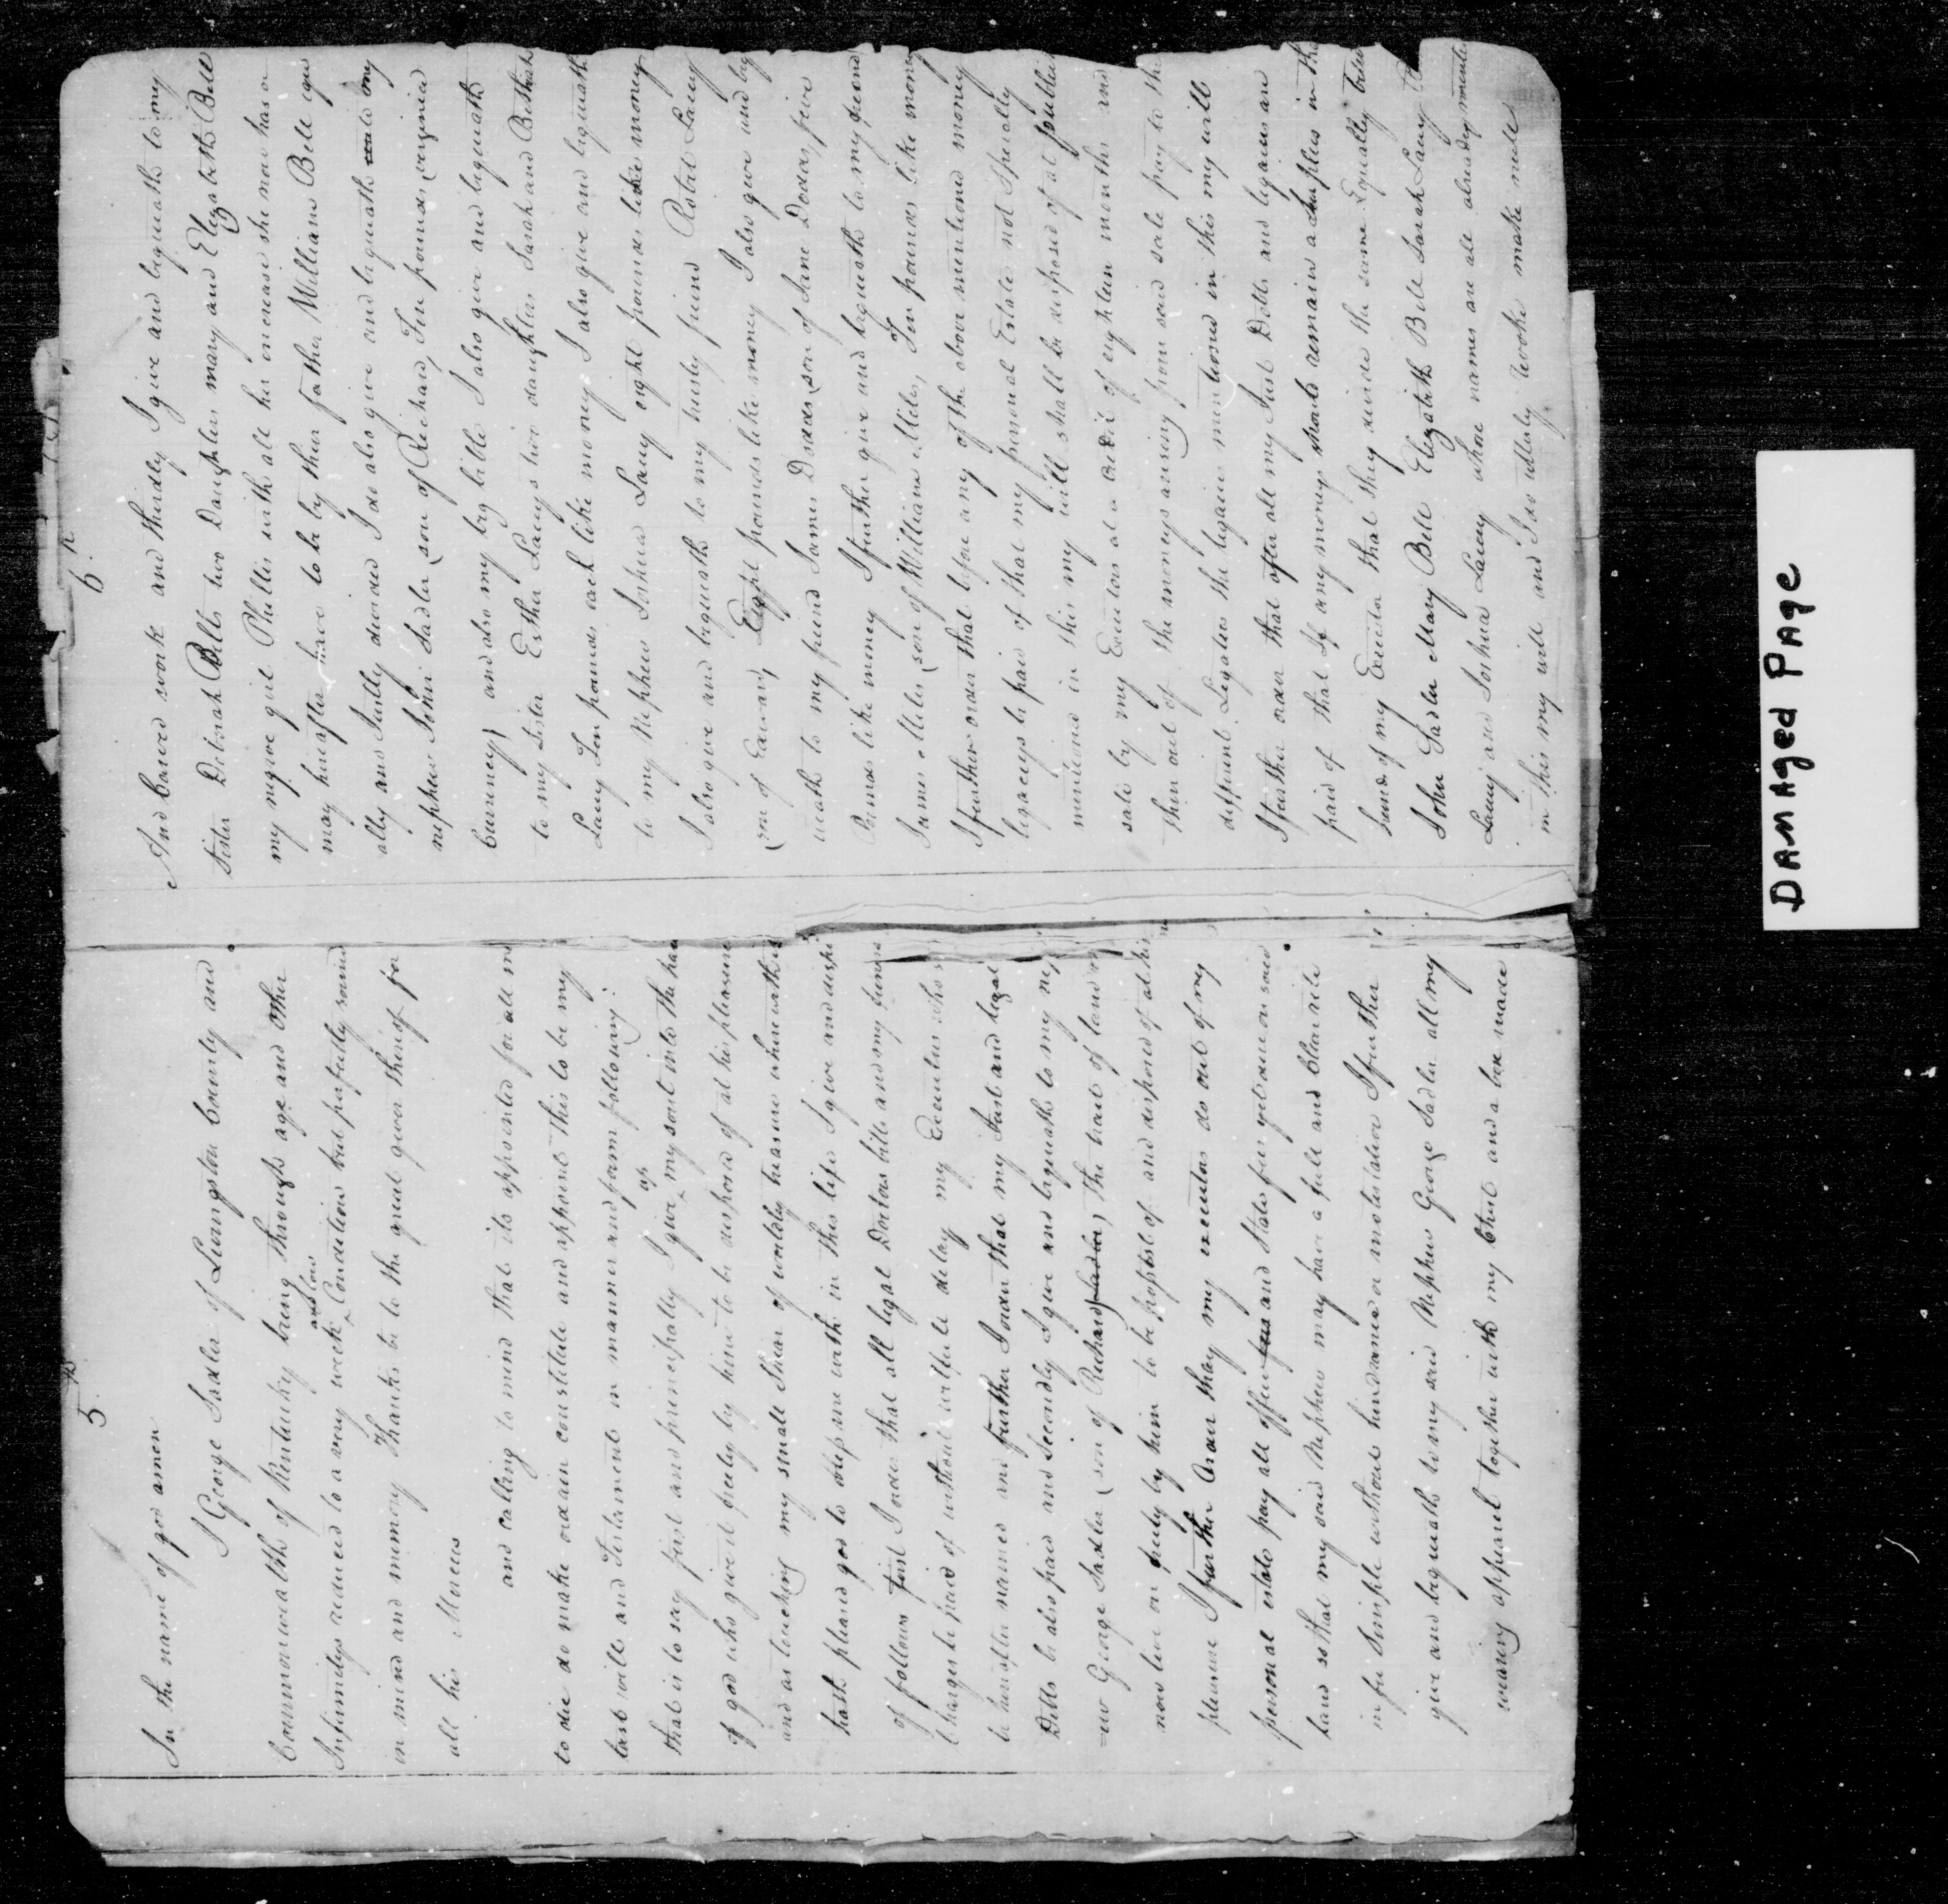 5
In the name of god amen
I George Sadler of Livingston County and
Commonwealth of Kentucky being through age and other
Infirmitys reduced to a very week and low Condition but perfectly sound
in mind and memory Thanks be to the great giver thereof for
all his Mercus
and calling to mind that its appointed for all m
to die do make ordain constitute and appoint this to be my
last will and Testament in manner and form following:
that is to say first and principally I give up my soul into the han
of god who gave it freely by him to be disposed of at his pleasure
and as touching my small Shear of worldly treasure wherewith it
hath pleased god to bless me with in this life I give and dispo
of follows first I order that all legal Doctors bills and my funera
Charges be paid of without wilfule delay my Executors who s
be hereafter named and further I order that my Just and legal
Debts be also paid and Secondly I give and bequeath to my nep
=ew George Sadler (son of Richard Sadler) the tract of land I
now live on freely by him to be possest of and disposed of at his
pleasure I further Order that my executors do out of my
personal estate pay all office fees and State fees yet due on said
land so that my said Nephew may have a full and Clear title
in fee Simple without hinderance or molestation I further
give and bequeath to my said Nephew George Sadler all my
wearing apparel together with my Chest and a box made
6
And carved work and thirdly I give and bequeath to my
Sister Deborah Bells two Daughters mary and Elezabeth Bell
my negroe girl Phillis with all her increase she now has or
may hereafter have to be by their father William Bell equ
ally and Justly divided I do also give and bequeath unto my
nephew John Sadler (son of Richard) Ten pounds (verginia
Currency) and also my big bible I also give and bequeath
to my Sister Esther Lacys two daughters Sarah and Bethiah
Lacy Ten pounds each like money I also give and bequeath
to my Nephew Joshua Lacy eight pounds like money
I also give and bequeath to my trusty friend Robert Lacy
(son of Edward) Eight pounds like money I also give and beq
ueath to my friend James Dodds (son of Jane Dodds) five
Pounds like money I further give and bequeath to my friend
James Miles (son of William Miles) Ten pounds like money
I further order that before any of the above mentioned money
legaceys be paid of that my personal Estate not Specially
mentioned in this my will shall be disposed of at publick
sale by my Executors at a credit of eighteen months and
then out of the moneys arising from said sale pay to the
different Legatees the legaces mentioned in this my will
I further order that after all my Just Debts and legaces are
paid of that If any moneys should remain a surples in the
hands of my Executor that they divide the same Equally betw
John Sadler Mary Bell Elezabeth Bell Sarah Lacy
Lacy and Joshua Lacey whose names are all already mentio
in this my will and I do utterly revoke make null
DAMAGED PAGE